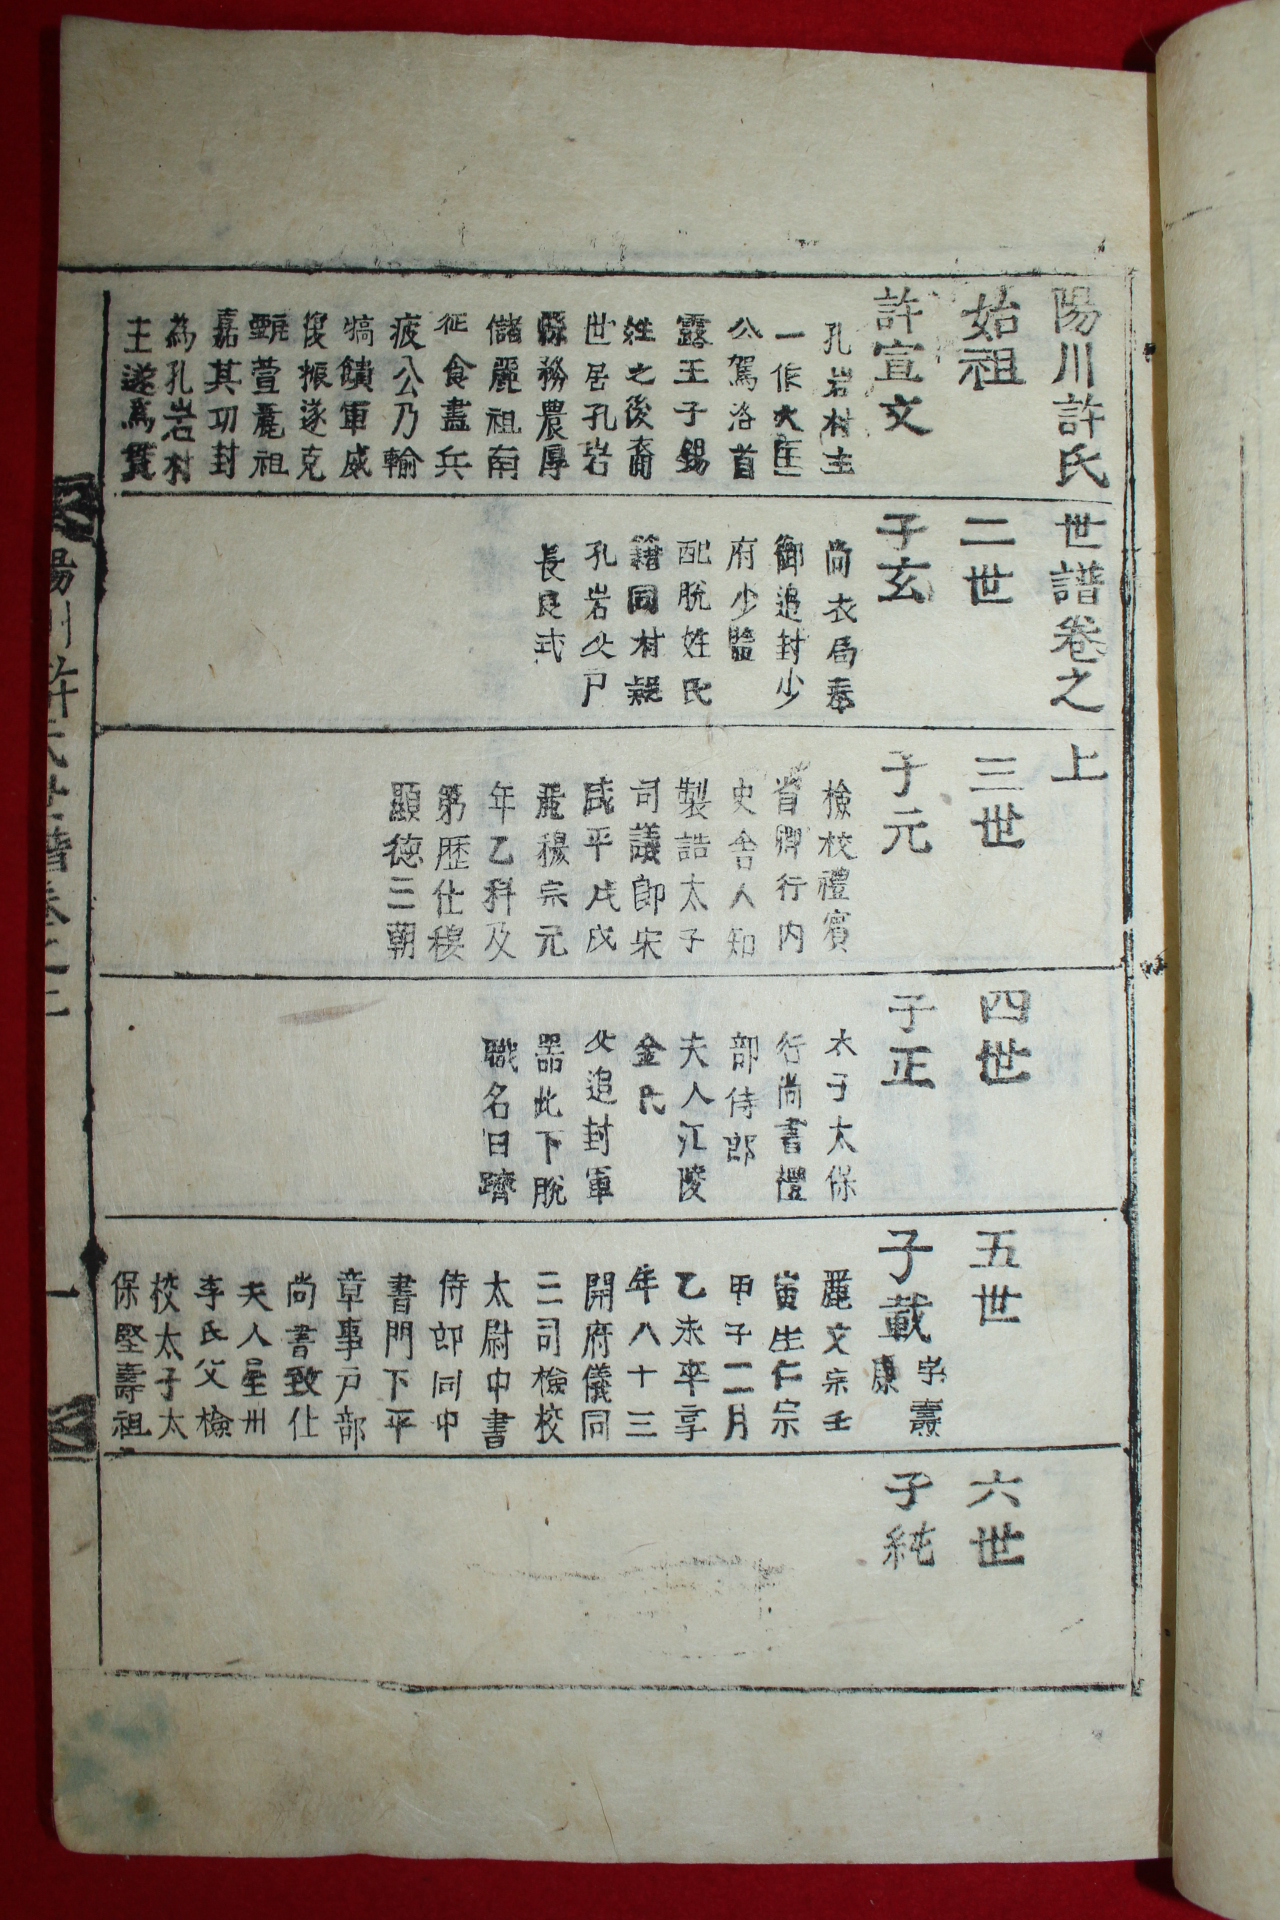 陽川許氏世譜卷之上
始祖
許宣文
孔岩村主
一作大匡
公駕洛首
露王子錫
姓之後裔
世居孔岩
縣務農厚
儲麗祖南
征食盡兵
疲公乃輸
犒饋軍威
復振遂克
甄萱麗祖
嘉其功封
為孔岩村
主遂爲貫
二世
子玄
尚衣局奉
御追封少
府少監
配脫姓氏
籍同村誤
孔岩父戶
長良式
三世
子元
檢校禮賓
省卿行内
史舍人知
製誥太子
司議郎宋
咸平戊戌
麗穆宗元
年乙科及
第歷仕穆
顯德三朝
四世
子正
太子太保
行尚書禮
部侍郎
夫人江陵
金氏
父追封軍
器此下脫
職名曰躋
五世
子載
字壽
康
麗文宗壬
寅生仁宗
甲子二月
乙未卒享
年八十三
開府儀同
三司檢校
太尉中書
侍郎同中
書門下平
章事戶部
尚書致仕
夫人星州
李氏父檢
校太子太
保堅壽祖
六世
子純
陽川許氏世譜卷之上
一